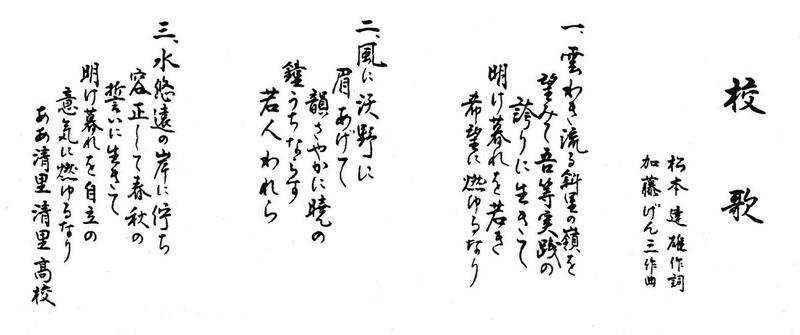 校歌
松本達雄作詞
加藤げん三作曲
一、雲わき流る斜里の嶺を
望みて吾等実践の
誇りに生きて
明け暮れを若き
希望に燃ゆるなり
二、風に沃野に
眉あげて
韻さやかに暁の
鐘うちならす
若人われら
三、水悠遠の岸に佇ち
容正して春秋の
誓いに生きて
明け暮れを自立の
意気に燃ゆるなり
ああ清里清里高校